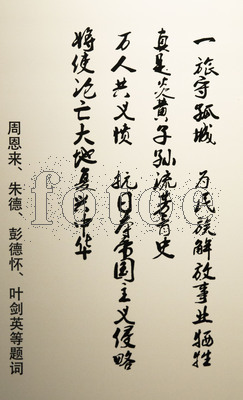 一旅守孤城 为民族解放事业牺牲
真是炎黄子孙流芳百史
万人共义愤 抗日帝国主义侵略
将使沦亡大地复兴中华
周恩来、朱德、彭德怀、叶剑英等题词